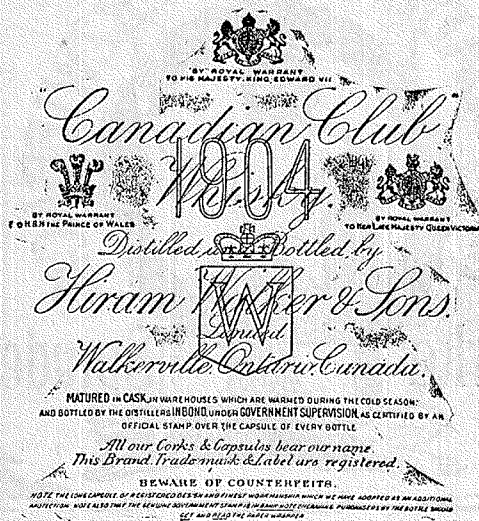 BY ROYAL WARRANT
TO HIS MAJESTY, KING EDWARD VII
"Canadian Club"
1904
Whisky.
BY ROYAL WARRANT
TO H.R.H THE PRINCE OF WALES
BY ROYAL WARRANT
TO HER LATE MAJESTY QUEEN VICTORIA
Distilled & Bottled by
Hiram Walker & Sons.
W
Limited
Walkerville, Ontario, Canada.
MATURED IN CASK, IN WAREHOUSES WHICH ARE WARMED DURING THE COLD SEASON;
AND BOTTLED BY THE DISTILLERS IN BOND, UNDER GOVERNMENT SUPERVISION, AS CERTIFIED BY AN
OFFICIAL STAMP OVER THE CAPSULE OF EVERY BOTTLE
All our Corks & Capsules bear our name.
This Brand, Trade mark & Label are registered.
BEWARE OF COUNTERFEITS.
NOTE THE LONG CAPSULE OF REGISTERED DESIGN AND FINEST WORKMANSHIP WHICH WE HAVE ADOPTED AS AN ADDITIONAL
PROTECTION. NOTE ALSO THAT THE GENUINE GOVERNMENT STAMP IS IN BANK NOTE ENGRAVING. PURCHASERS BY THE BOTTLE SHOULD
GET AND READ THE PAPER WRAPPER